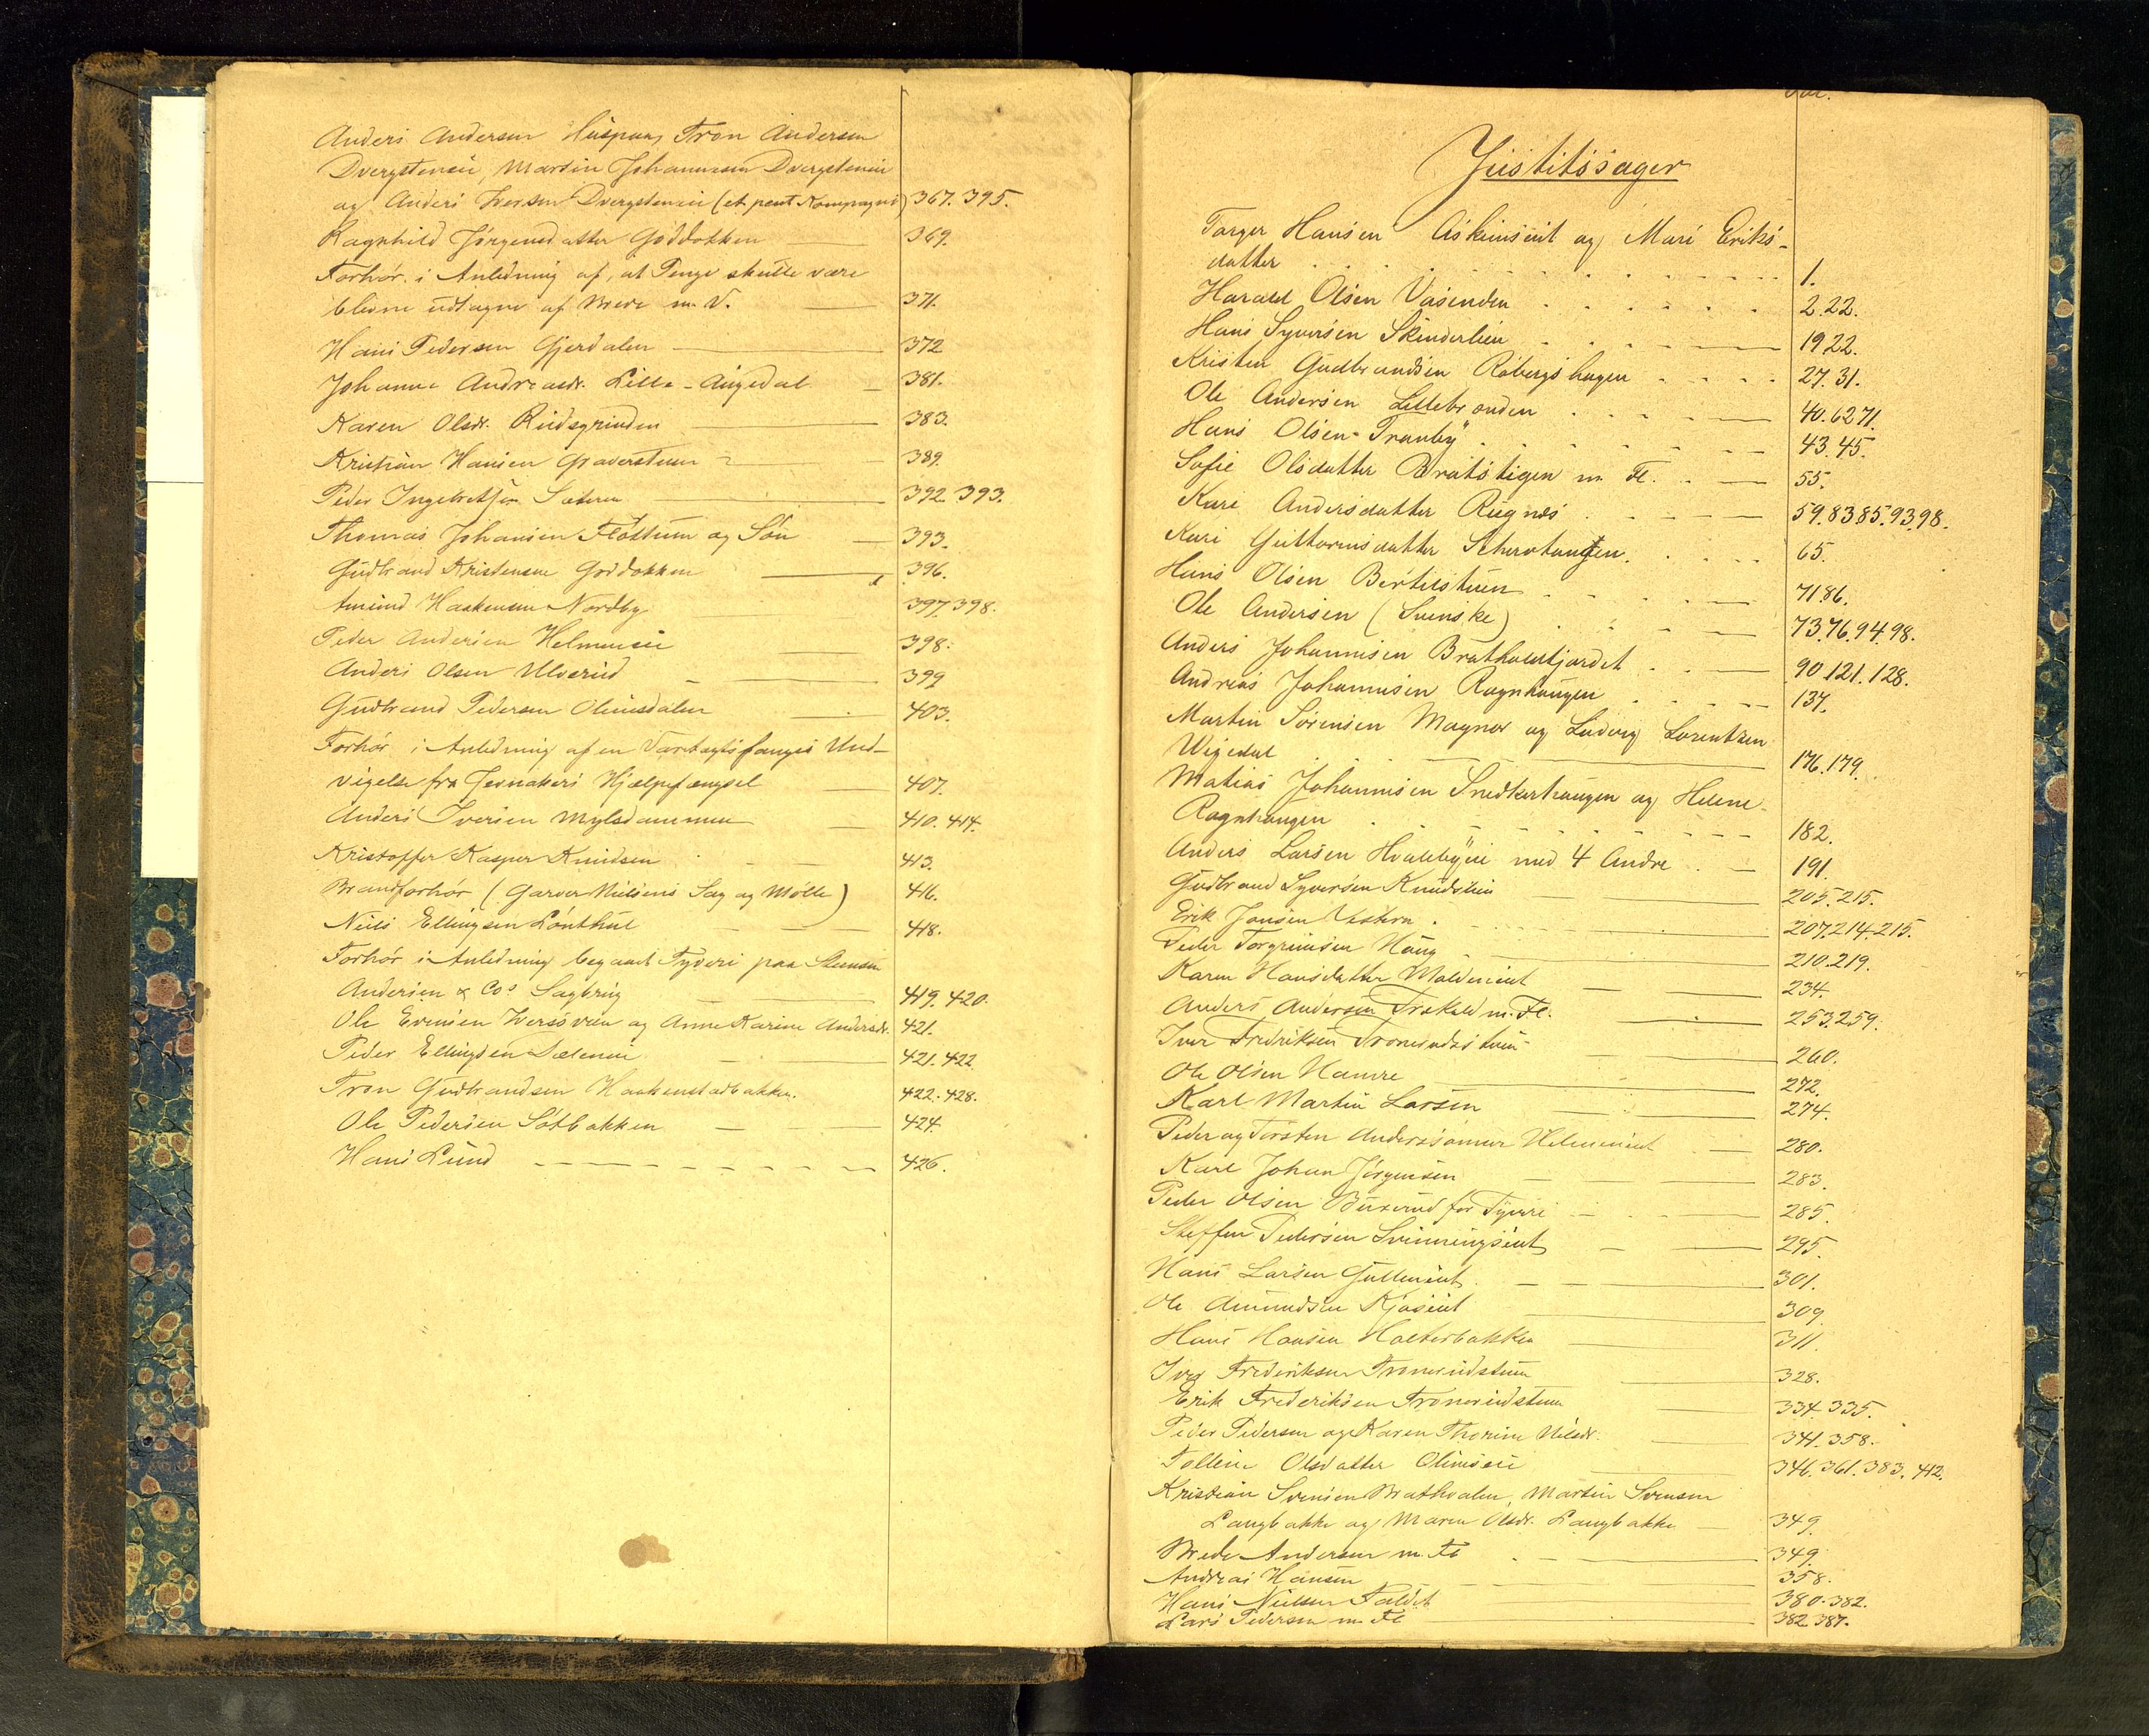 Anders Andersen Huspaas, Tron Andersen
Dvergsteneie, Martin Johannesen Dvergsteneie
og Anders Iversen Dvergsteneie (et pent Kompagni) 367. 395.
Ragnhild Jörgensdatter Goddokken 369.
Forhör i Anledning af, at Penge skulle være
blevne udtagne af Breve m. V. 371.
Hans Pedersen Gjerdalen 372
Johanne Andreasdr. Lille-Augedal 381.
Karen Olsdr. Rudsgrinden 383.
Kristian Hansen Graverstuen 389.
Peder Ingebretsen Sæteren 392. 393.
Thomas Johansen Flöttum og Sön 393.
Gudbrand Kristensen Goddokken 396.
Amund Haakensen Nordby 397. 398.
Peder Andersen Helmeneie 398.
Anders Olsen Ulverud 399
Gudbrand Pedersen Olimsdalen 403.
Forhör i Anledning af en Varetægtsfanges Und-
vigelse fra Jevnakers Hjælpefængsel 407.
Anders Iversen Mylsdammen 410. 414.
Kristoffer Kasper Knudsen 413.
Brandforhör (Garver Nielsens Sag og Mölle) 416.
Niels Ellingsen Lönthul 418.
Forhör i Anledning begaaet Tyveri paa Steensen
Andersen & Cos Sagbrug 419. 420.
Ole Evensen Versveen og Anne Karine Andersdr. 421.
Peder Ellingsen Dæleneie 421. 422
Tron Gudbrandsen Haakenstadbakken 422. 428.
Ole Pedersen Sötbakken 424.
Hans Lund 426.
Fol.
Justitssager
Torger Hansen Askimseiet og Mari Eriks-
datter 1.
Harald Olsen Vasenden 2. 22.
Hans Syversen Skinderlien 19 22.
Kristen Gudbrandsen Råbergshagen 27. 31.
Ole Andersen Lillebranden 40. 62 71.
Hans Olsen Tranby 43. 45.
Sofie Olsdatter Bratstigen m. Fl. 55.
Kari Andersdatter Rugnæs 59. 83 85. 93 98.
Kari Guttormsdatter Scherotangen. 65.
Hans Olsen Bertilstuen 71 86.
Ole Andersen (Svenske) 73. 76. 94. 98.
Anders Johannesen Bratvaldkjærdet 90. 121. 128.
Andreas Johannesen Ragnhaugen 137.
Martin Sörensen Magnor og Ludvig Lorentzen
Wigedal 176. 179.
Mathias Johannesen Snedkerhaugen og Helene
Ragnhaugen 182.
Anders Larsen Hvalebyeie med 4 Andre 191.
Gudbrand Syversen Knudslien 205. 215.
Erik Jansen Vestern 207. 214. 215.
Peder Torgrimsen Haug 210. 219.
Karen Hansdatter Maldeneiet 234.
Anders Andersen Trskeld m. Fl. 253. 259.
Iver Fredriksen Tronerudstuen 260.
Ole Olsen Hamre 272.
Karl Martin Larsen 274.
Peder og Torsten Anderssönner Helmeneiet 280.
Karl Johan Jörgensen 283.
Peder Olsen Buxerud for Tyveri 285.
Steffen Pedersen Svinningseiet 295.
Hans Larsen Gulleneiet 301.
Ole Amundsen Kjoseiet 309
Hans Hansen Halterbakken 311.
Iver Frederiksen Tronerudstuen 328.
Erik Frederiksen Tronerudstuen 334. 335.
Peder Pedersen og Karen Thorine Nilsdr. 341. 358.
Tolline Olsdatter Olimseie 346. 361. 383. 412.
Kristian Svensen Brathvalen, Martin Svensen
Langbakke og Maren Olsdr. Langbakke 349.
Brede Andersen m. Fl 349.
Andreas Hansen 358.
Hans Nielsen Faldet 380. 382.
Lars Pedersen m. Fl 382 387.